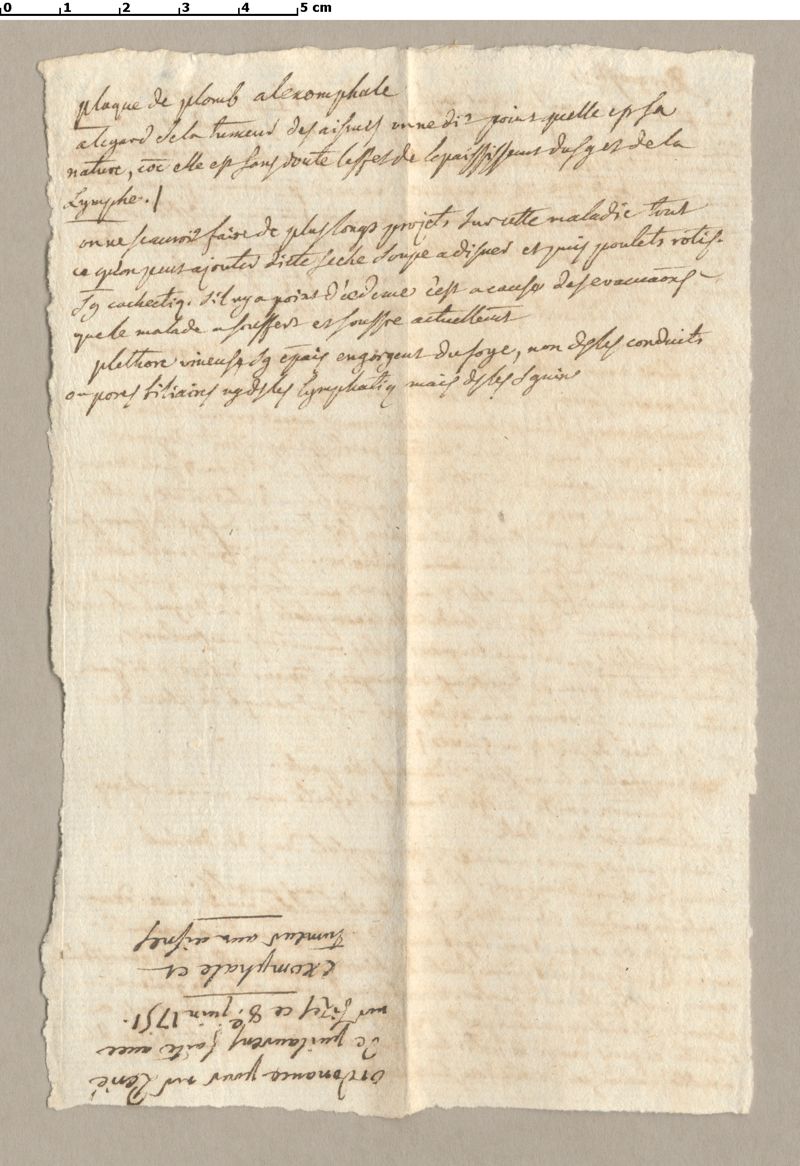 0 1 2 3 4 5 cm
plaque de plomb alexomphale
alegard de la tumeur des aisnes on ne dit point quelle est sa
nature, car elle est sans doute leffet de lepaississement du sg et de la
Lymphe./
on ne scauroit faire de plus longs projets sur cette maladie tout
ce qu'on peut ajouter diete seche soupe a disner et puis poulets rotis.
Sg cachectiq. s'il ny a point d'œdeme c'est a cause des evacuaōns
que le malade a souffert et souffre actuellemt
plethore vineuse sg epais engorgemt du foye, non ds les conduits
ou pores biliaires ny ds les lymphatiq mais ds les sguins
ordonance pour mr René
De puilaurens faite avec
mr fizes ce 8e. juin 1751.
exomphale et
tumeur aux aisnes